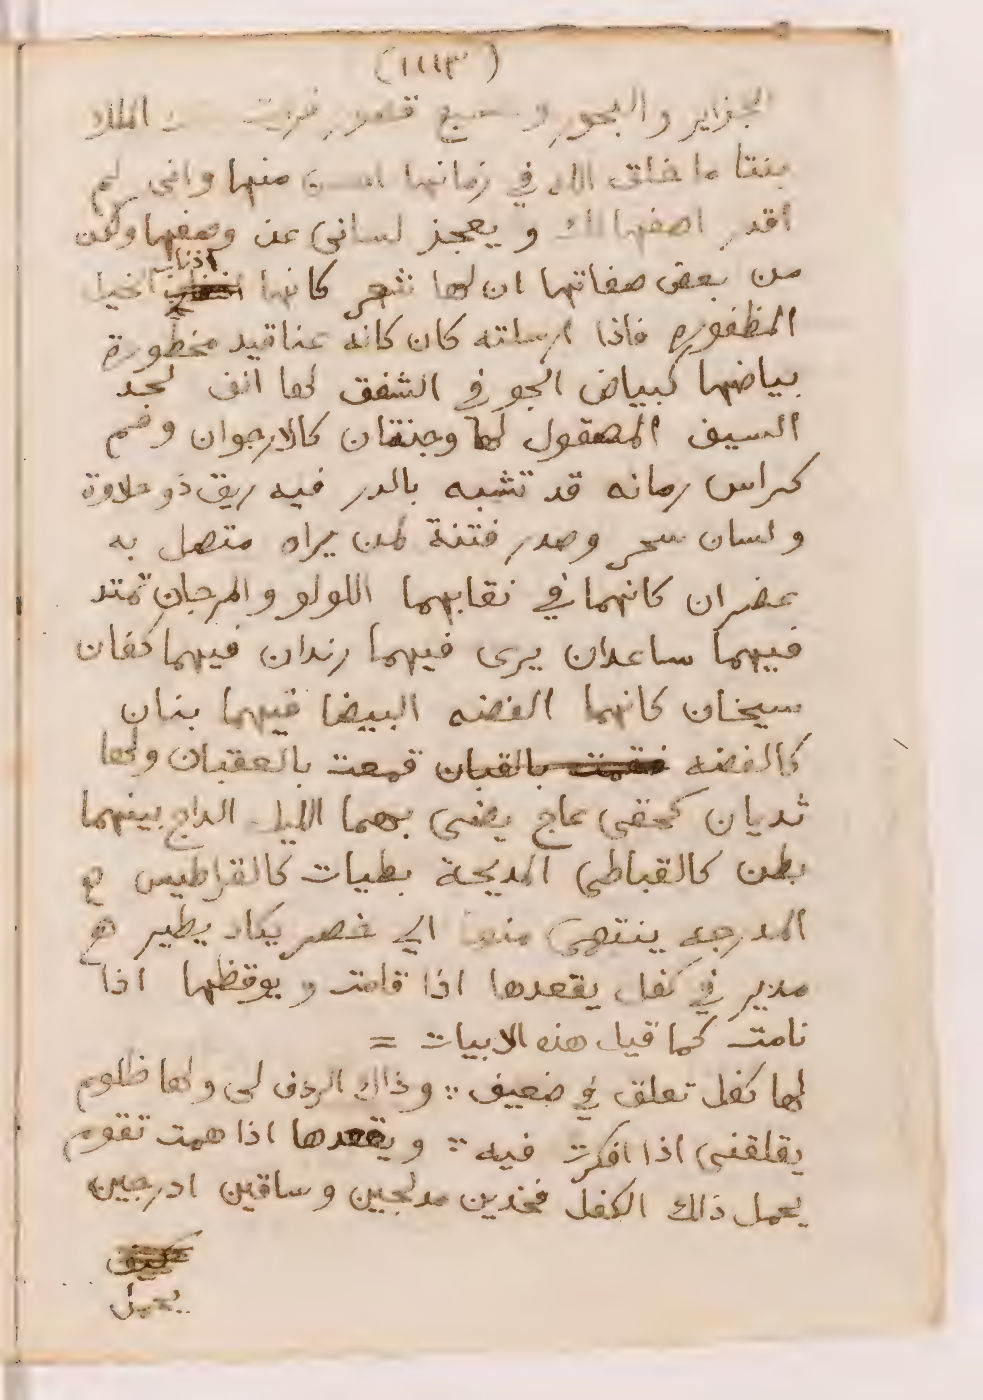 (١١١٣)
الجزاير والبحور و سبع قصور
بنتا ما خلق الله في زمانها احسن منها واني لم
اقدر اصفها لك و يعجز لساني عن وصفها ولكن
من بعض صفاتها ان لها شعر كانها اذناب الخيل
المظفوره فاذا ارسلته كان كانه عناقيد مخطورة
بياضها كبياض الجو في الشفق لها انف لحد
السيف المصقول لها وجنتان كالارجوان وفم
كراس رمانه قد تشبه بالدر فيه ريق ذو حلاوة
ولسان سحر وصدر فتنة لمن يراه متصل به
عضران كانهما في نقابهما اللولو والمرجان تمتد
فيهما ساعدان يرى فيهما زندان فيهما كفان
سيخان كانهما الفضه البيضا فيهما بنان
كالفضه قمعت بالعقبان ولها
ثديان كحقي عاج يضي بهما الليل الداج بينهما
بطن كالقباطي المديحة بطيات كالقراطيس
المدرجه ينتهي منها الي خصر يكاد يطير
مدير في كفل يقعدها اذا قامت و يوقظها اذا
نامت كما قيل هذه الابيات =
لها كفل تعلق في ضعيف :: وذاك الردف لي ولها ظلوم
يقلقني اذا افكرت فيه :: ويقعدها اذا همت تقوم
يحمل ذلك الكفل فخذين مدلجين وساقين ادرجين
يحمل